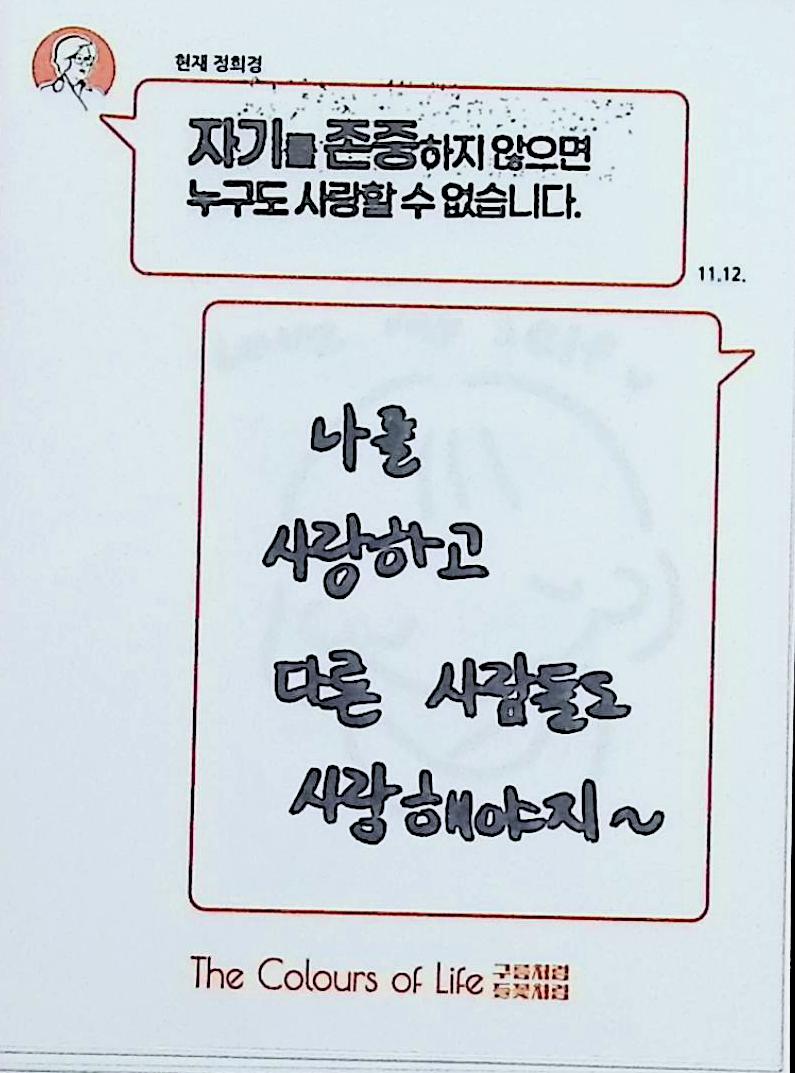 현재 정희경
자기를 존중하지 않으면
누구도 사랑할 수 없습니다.
11.12.
나를
사랑하고
다른 사람들도
사랑해야지~
The Colours of Life 구름처럼
들꽃처럼